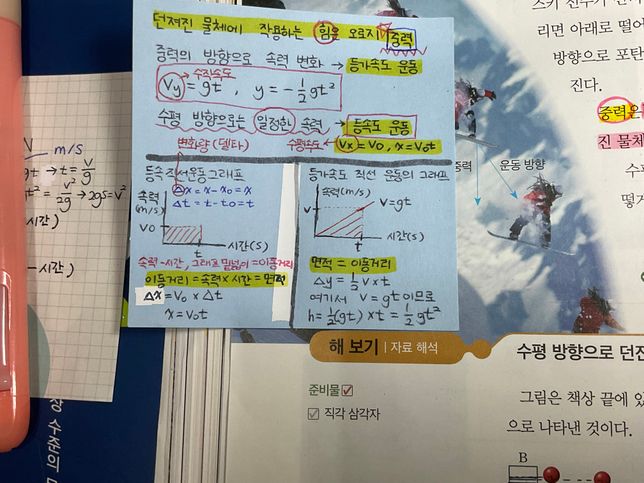 던져진 물체에 작용하는 힘은 오로지 중력
중력의 방향으로 속력 변화 → 등가속도 운동
수직속도
Vy = gt , y = -1/2 gt²
수평 방향으로는 일정한 속력 → 등속도 운동
변화량 (델타)
수평속도 ← Vx = V₀, x = V₀t
등속 직선운동그래프
△x = x - x₀ = x
△t = t - t₀ = t
속력
(m/s)
V₀
t
시간(s)
속력-시간, 그래프 밑넓이 = 이동거리
이동거리 = 속력 × 시간 = 면적
△x = V₀ × △t
x = V₀t
등가속도 직선 운동의 그래프
속력(m/s)
v
v = gt
t
시간(s)
면적 = 이동거리
△y = 1/2 v × t
여기서 v = gt 이므로
h = 1/2 (gt) × t = 1/2 gt²
V
m/s
gt → t = v/g
t² = v²/2g → 2gs = v²
시간)
- 시간)
리면 아래로 떨어
방향으로 포탄
진다.
중력은
진 물체
중력
운동 방향
해 보기 | 자료 해석
수평 방향으로 던진
준비물
직각 삼각자
그림은 책상 끝에 있
으로 나타낸 것이다.
B